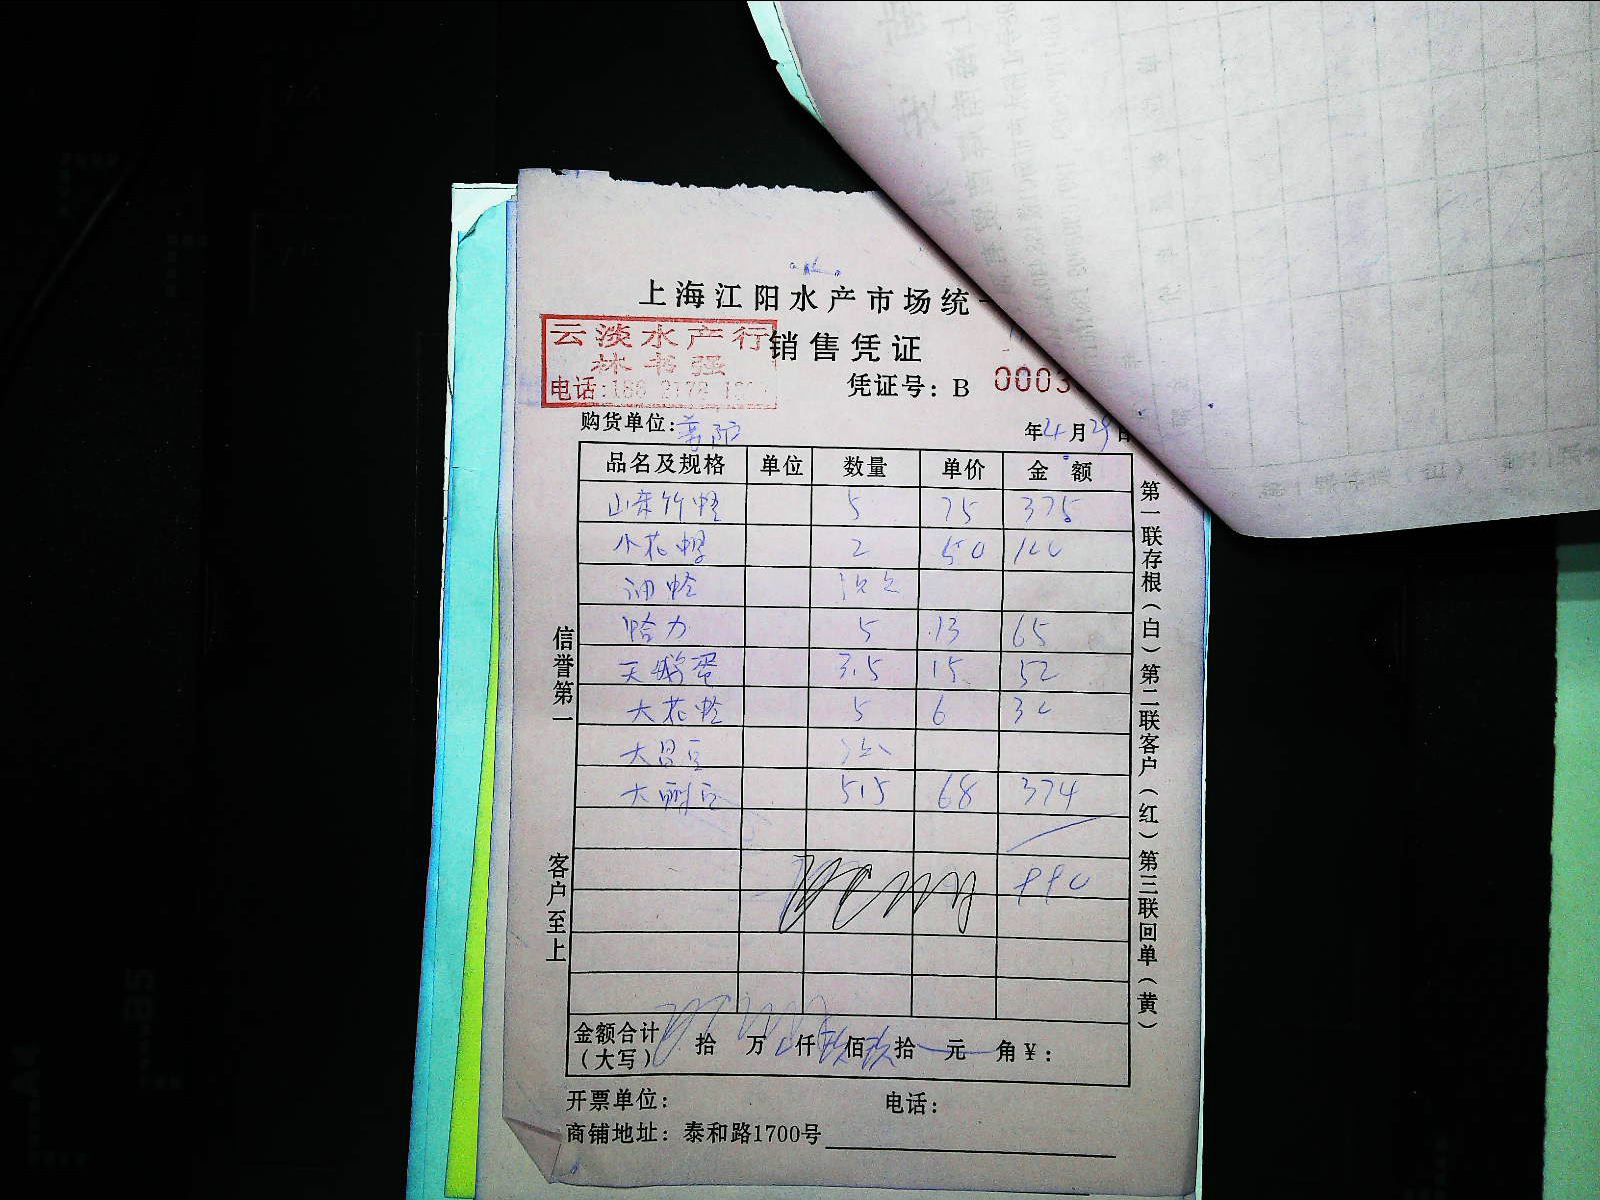 上海江阳水产市场统一
销售凭证
云淡水产行
林书强
电话:
凭证号: B 0003
购货单位:
年4月29日
品名及规格 单位 数量 单价 金额
山东竹蛏 5 75 375
小花螺 2 50 100
油蛤
蛤力 5 13 65
天鹅蛋 3.5 15 52
大花蛤 5 6 30
5.5 68 374
990
金额合计（大写） 拾 万 仟 玖 佰 玖 拾 元 角 ¥:
开票单位: 电话:
商铺地址: 泰和路1700号
信誉第一
客户至上
第一联存根（白）第二联客户（红）第三联回单（黄）